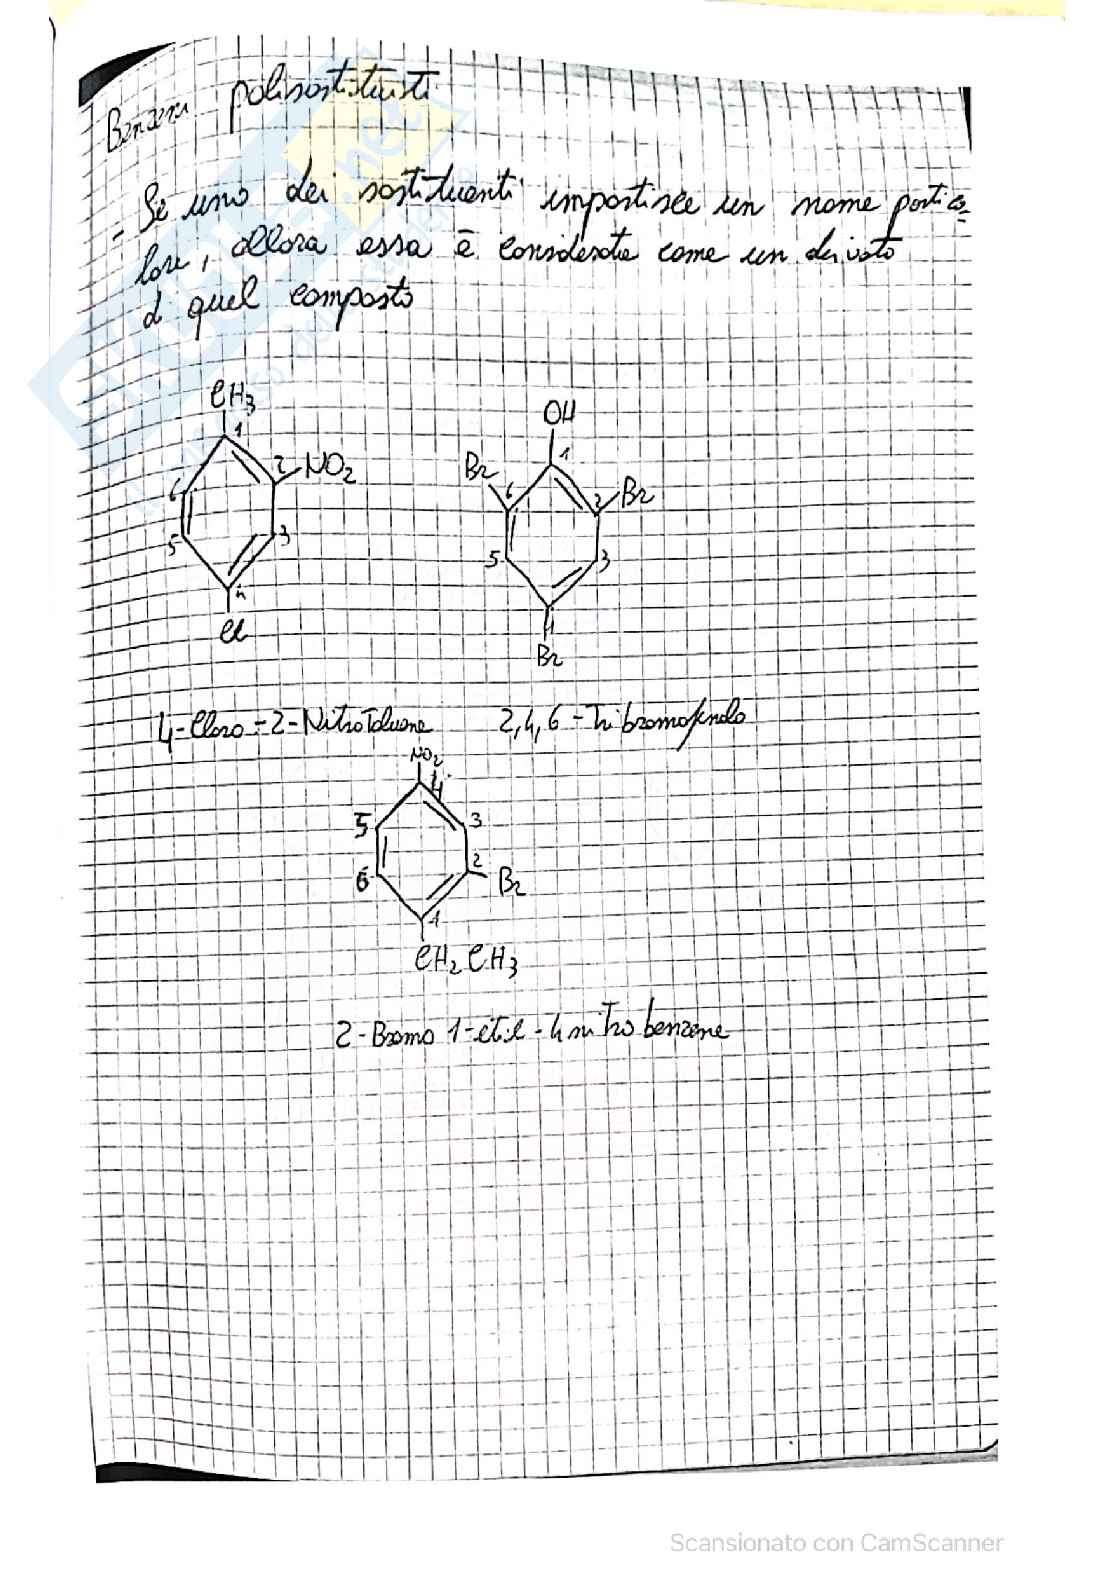 Benzeni polisostituiti
- Se uno dei sostituenti impartisce un nome partico=
lare, allora essa è considerata come un derivato
di quel composto
CH3
1
2 NO2
6
5
3
4
Cl
OH
1
Br
6
2 Br
5
3
4
Br
4-Cloro-2-Nitrotoluene 2,4,6-Tribromofenolo
NO2
4
5
3
2
6
Br
1
CH2CH3
2-Bromo 1-etil-4nitrobenzene
Scansionato con CamScanner